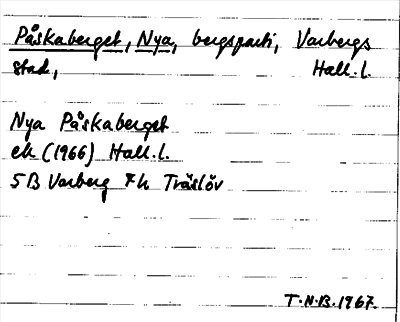 Påskaberget, Nya, bergsparti, Varbergs
stad, Hall.l.
Nya Påskaberget
ek (1966) Hall.l.
5B Varberg 7h Träslöv
T.N.B. 1967.